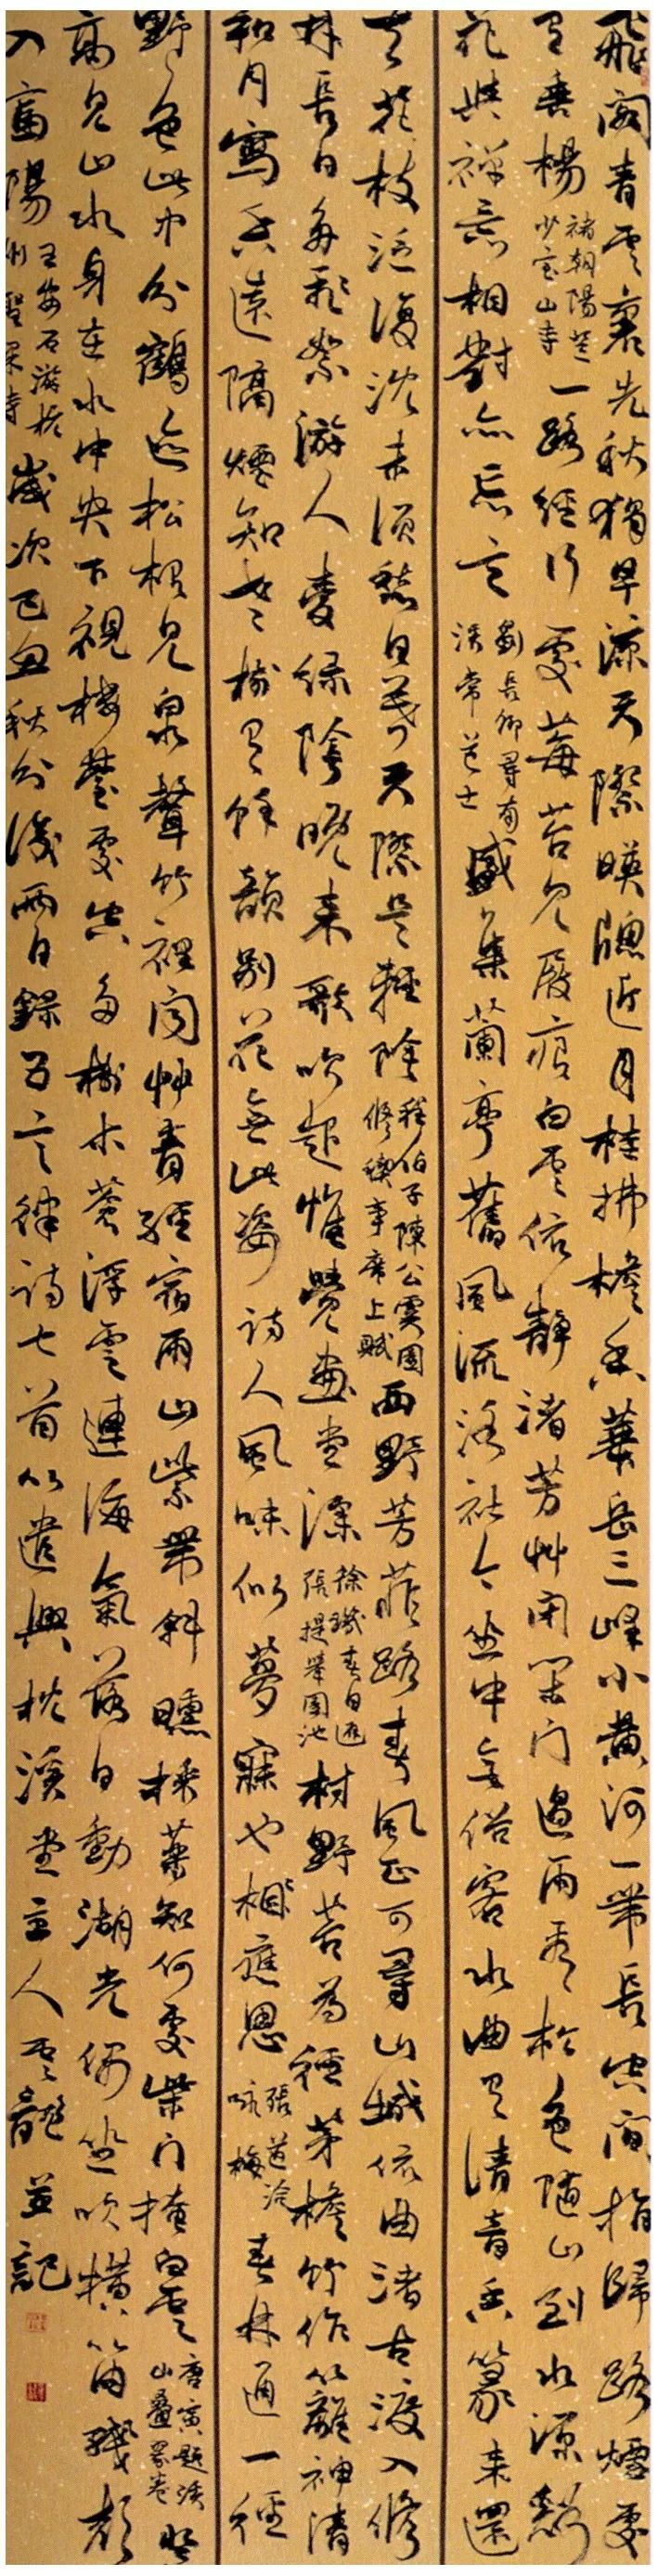 飛閣青雲裏先秋獨早涼天際映牕近月桂拂檐香華岳三峰小黃河一帶長空間指歸路煙處
有垂楊褚朝陽登少室山寺一路經行處莓苔見屐痕白雲依靜渚芳艸閉閑門過雨看松色隨山到水源谿
花與禪意相對亦忘言劉長卿尋南溪常道士盛集蘭亭舊風流洛社今坐中無俗客水曲有清音香篆來還
去花枝泛復沈未須愁日暮天際是輕陰程伯子陳公廙園修禊事席上賦西野芳菲路春風正可尋山城依曲渚古渡入修
林長日多飛絮游人愛綠陰晚來歌吹起惟覺畫堂深徐璣春日遊張提舉園池村野苔為徑茅檐竹作籬神清
和月寫香遠隔煙知老樹有餘韻別花無此姿詩人風味似夢寐也相應思張道洽咏梅春林通一徑
野色此中分鶴迹松根見泉聲竹裡聞艸青經宿雨山紫帶斜曛採藥知何處柴門掩白雲唐寅題溪山疊翠卷登
高見山水身在水中央下視樓臺處空多樹木蒼浮雲連海氣落日動湖光偶坐吹橫笛殘聲
入富陽王安石游杭州聖果寺歲次己丑秋分後兩日錄五言律詩七首以遣興枕溪堂主人雲龍並記